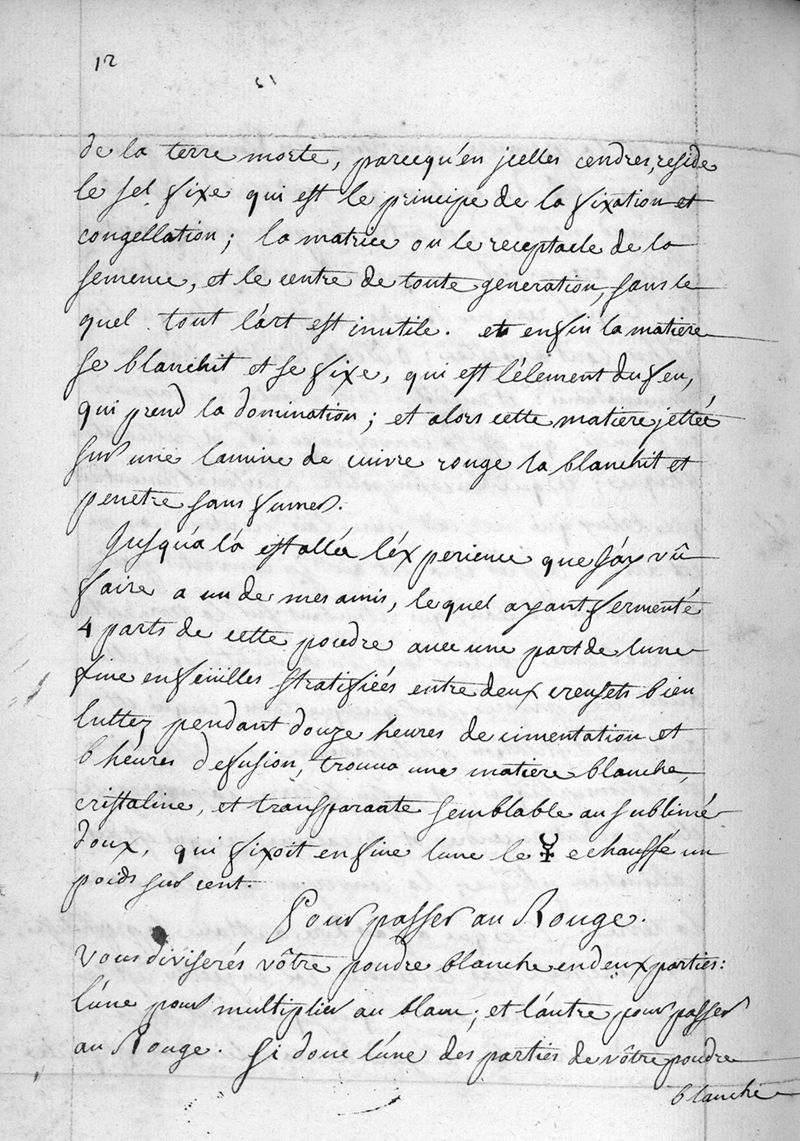 12
de la terre morte, parcequ'en jcelles cendres, reside
le sel fixe qui est le principe de la fixation et
congellation; la matrice ou le receptacle de la
semence, et le centre de toute generation, sans le
quel tout l'art est inutile. et enfin la matiere
se blanchit et se fixe, qui est l'élement du feu,
qui prend la domination; et alors cette matiere jettée
sur une lamine de cuivre rouge la blanchit et
penetre sans fumer.
Jusqu'a là est allée l'éxperience que j'ay vû
faire a un de mes amis, le quel ayant fermenté
4 parts de cette poudre avec une part de lune
fine en feüilles stratifiées entre deux creusets bien
luttez pendant douze heures de cimentation et
6 heures de fusion, trouva une matiere blanche,
cristaline, et transparante semblable au sublimé
doux, qui fixoit en fine lune le ☿ echauffé un
poids sur cent.
Pour passer au Rouge.
Vous diviserés vôtre poudre blanche en deux parties:
l'une pour multiplier au blanc; et l'autre pour passer
au Rouge. Si donc l'une des parties de vôtre poudre
blanche